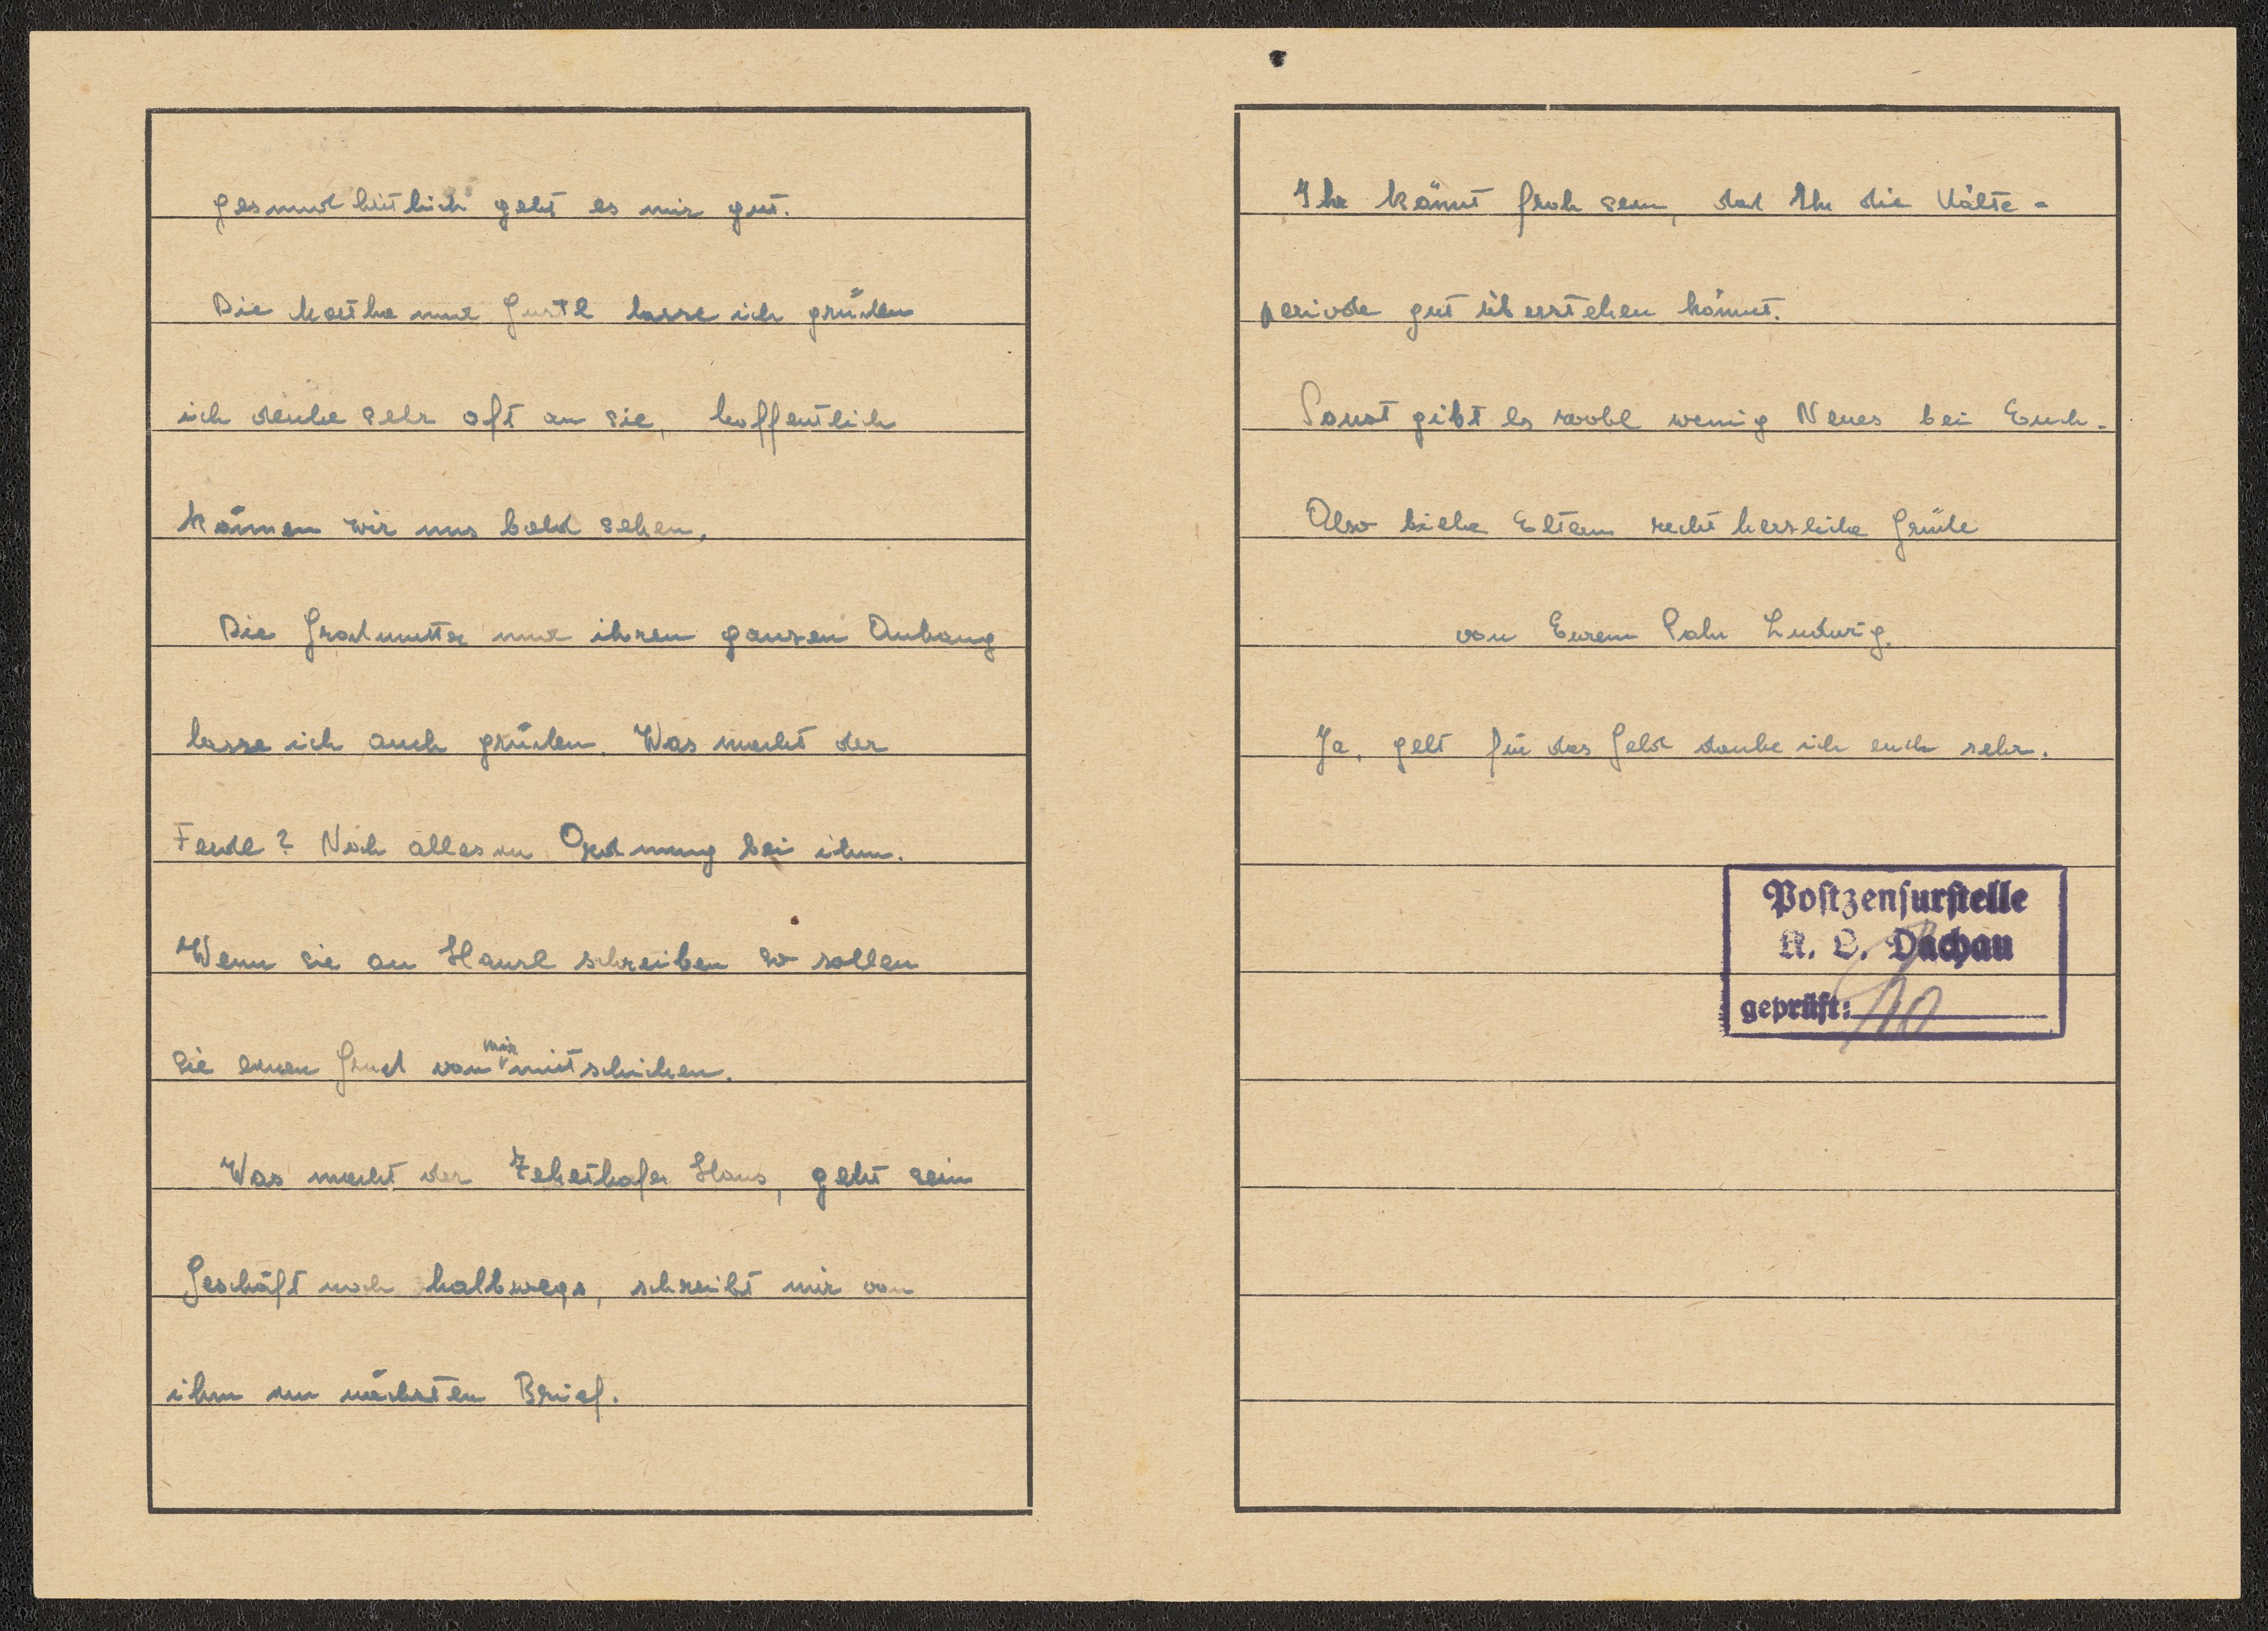 gesundheitlich geht es mir gut.
Die Kathe und Gustl lasse ich grüßen
ich denke sehr oft an sie, hoffentlich
können wir uns bald sehen.
Die Großmutter und ihren ganzen Anhang
lasse ich auch grüßen. Was macht der
Ferdl? Noch alles in Ordnung bei ihm.
Wenn sie an Hansl schreiben so sollen
sie einen Gruß von mir mitschicken.
Was macht der Zehethofer Hans, geht sein
Geschäft noch halbwegs, schreibt mir von
ihm im nächsten Brief.
Ihr könnt froh sein, daß Ihr die Kälte-
periode gut überstehen könnt.
Sonst gibt es wohl wenig Neues bei Euch.
Also liebe Eltern recht herzliche Grüße
von Eurem Sohn Ludwig.
Ja, gelt für das Geld danke ich euch sehr.
Postzensurstelle
K. L. Dachau
geprüft: